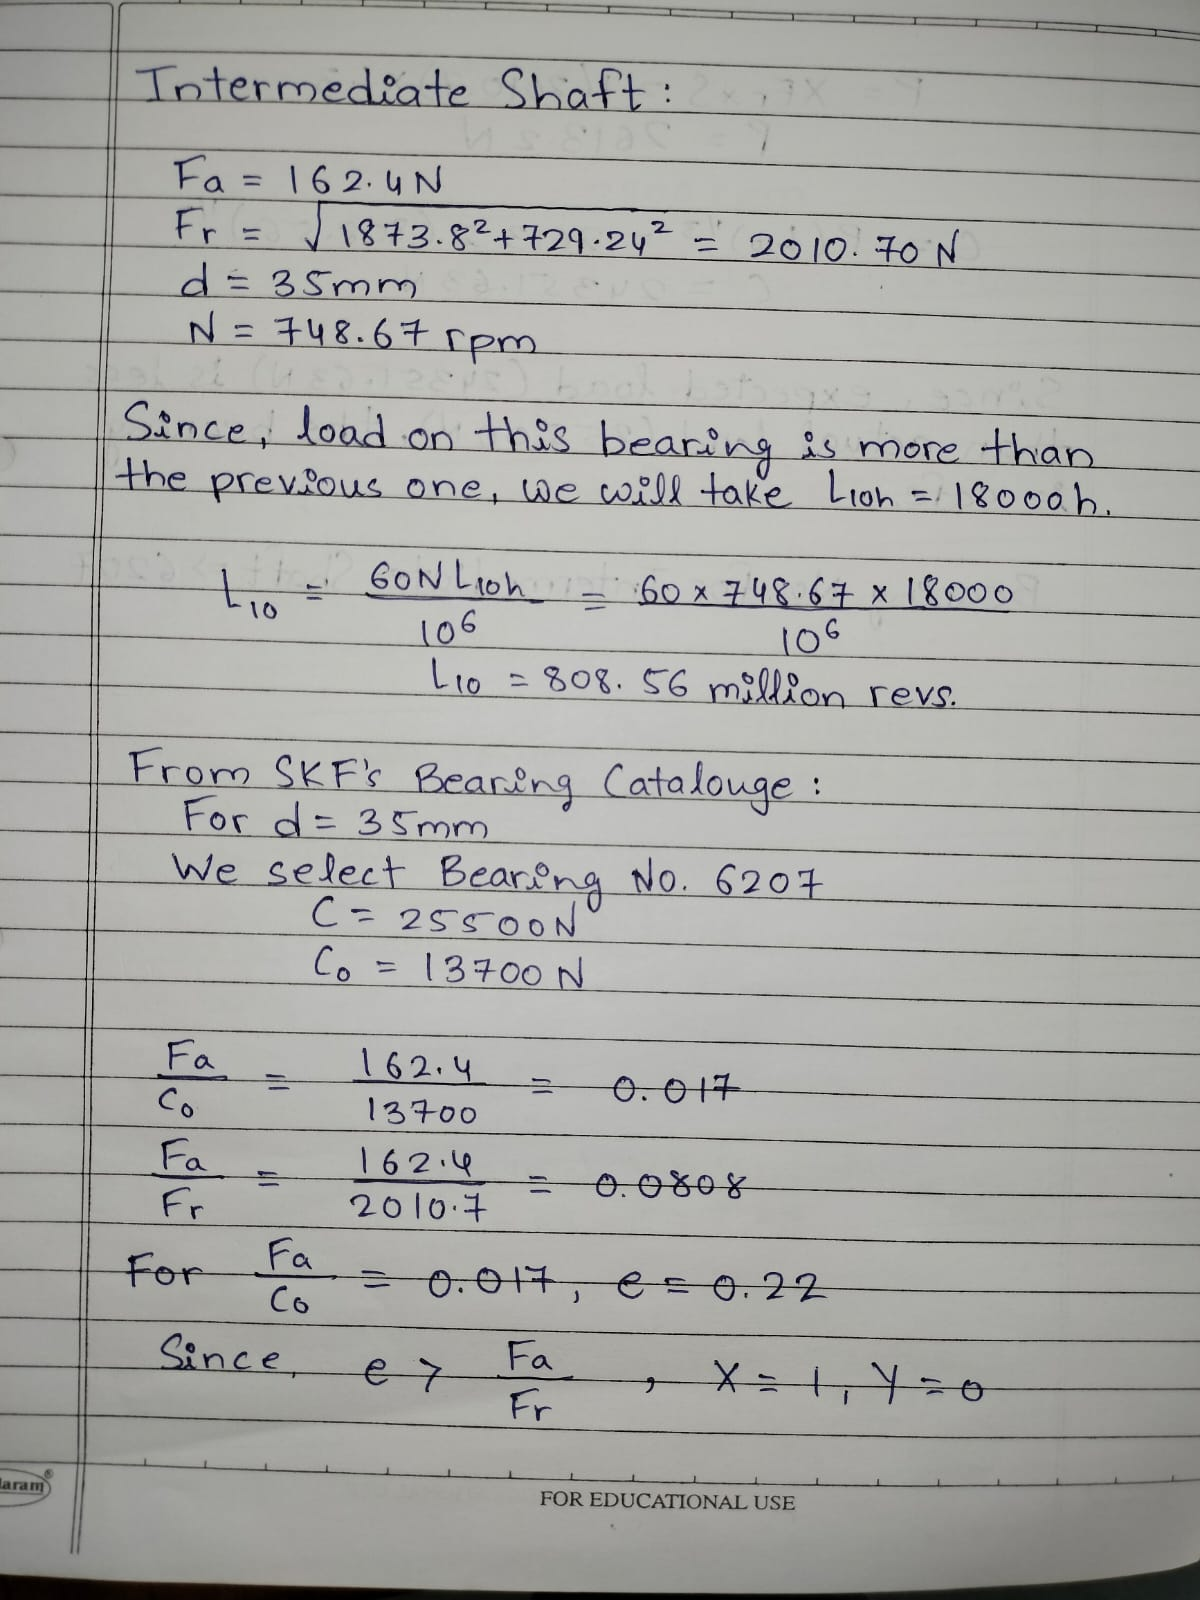 Intermediate Shaft:
Fa = 162.4N
Fr = √1873.8²+729.24² = 2010.70 N
d = 35mm
N = 748.67 rpm
Since, load on this bearing is more than
the previous one, we will take L10h = 18000h.
L10 = 60NL10h/10⁶ = 60 x 748.67 x 18000/10⁶
L10 = 808.56 million revs.
From SKF's Bearing Catalouge:
For d = 35mm
We select Bearing No. 6207
C = 25500N
Co = 13700 N
Fa/Co = 162.4/13700 = 0.017
Fa/Fr = 162.4/2010.7 = 0.0808
For Fa/Co = 0.017, e = 0.22
Since, e > Fa/Fr, X = 1, Y = 0
FOR EDUCATIONAL USE